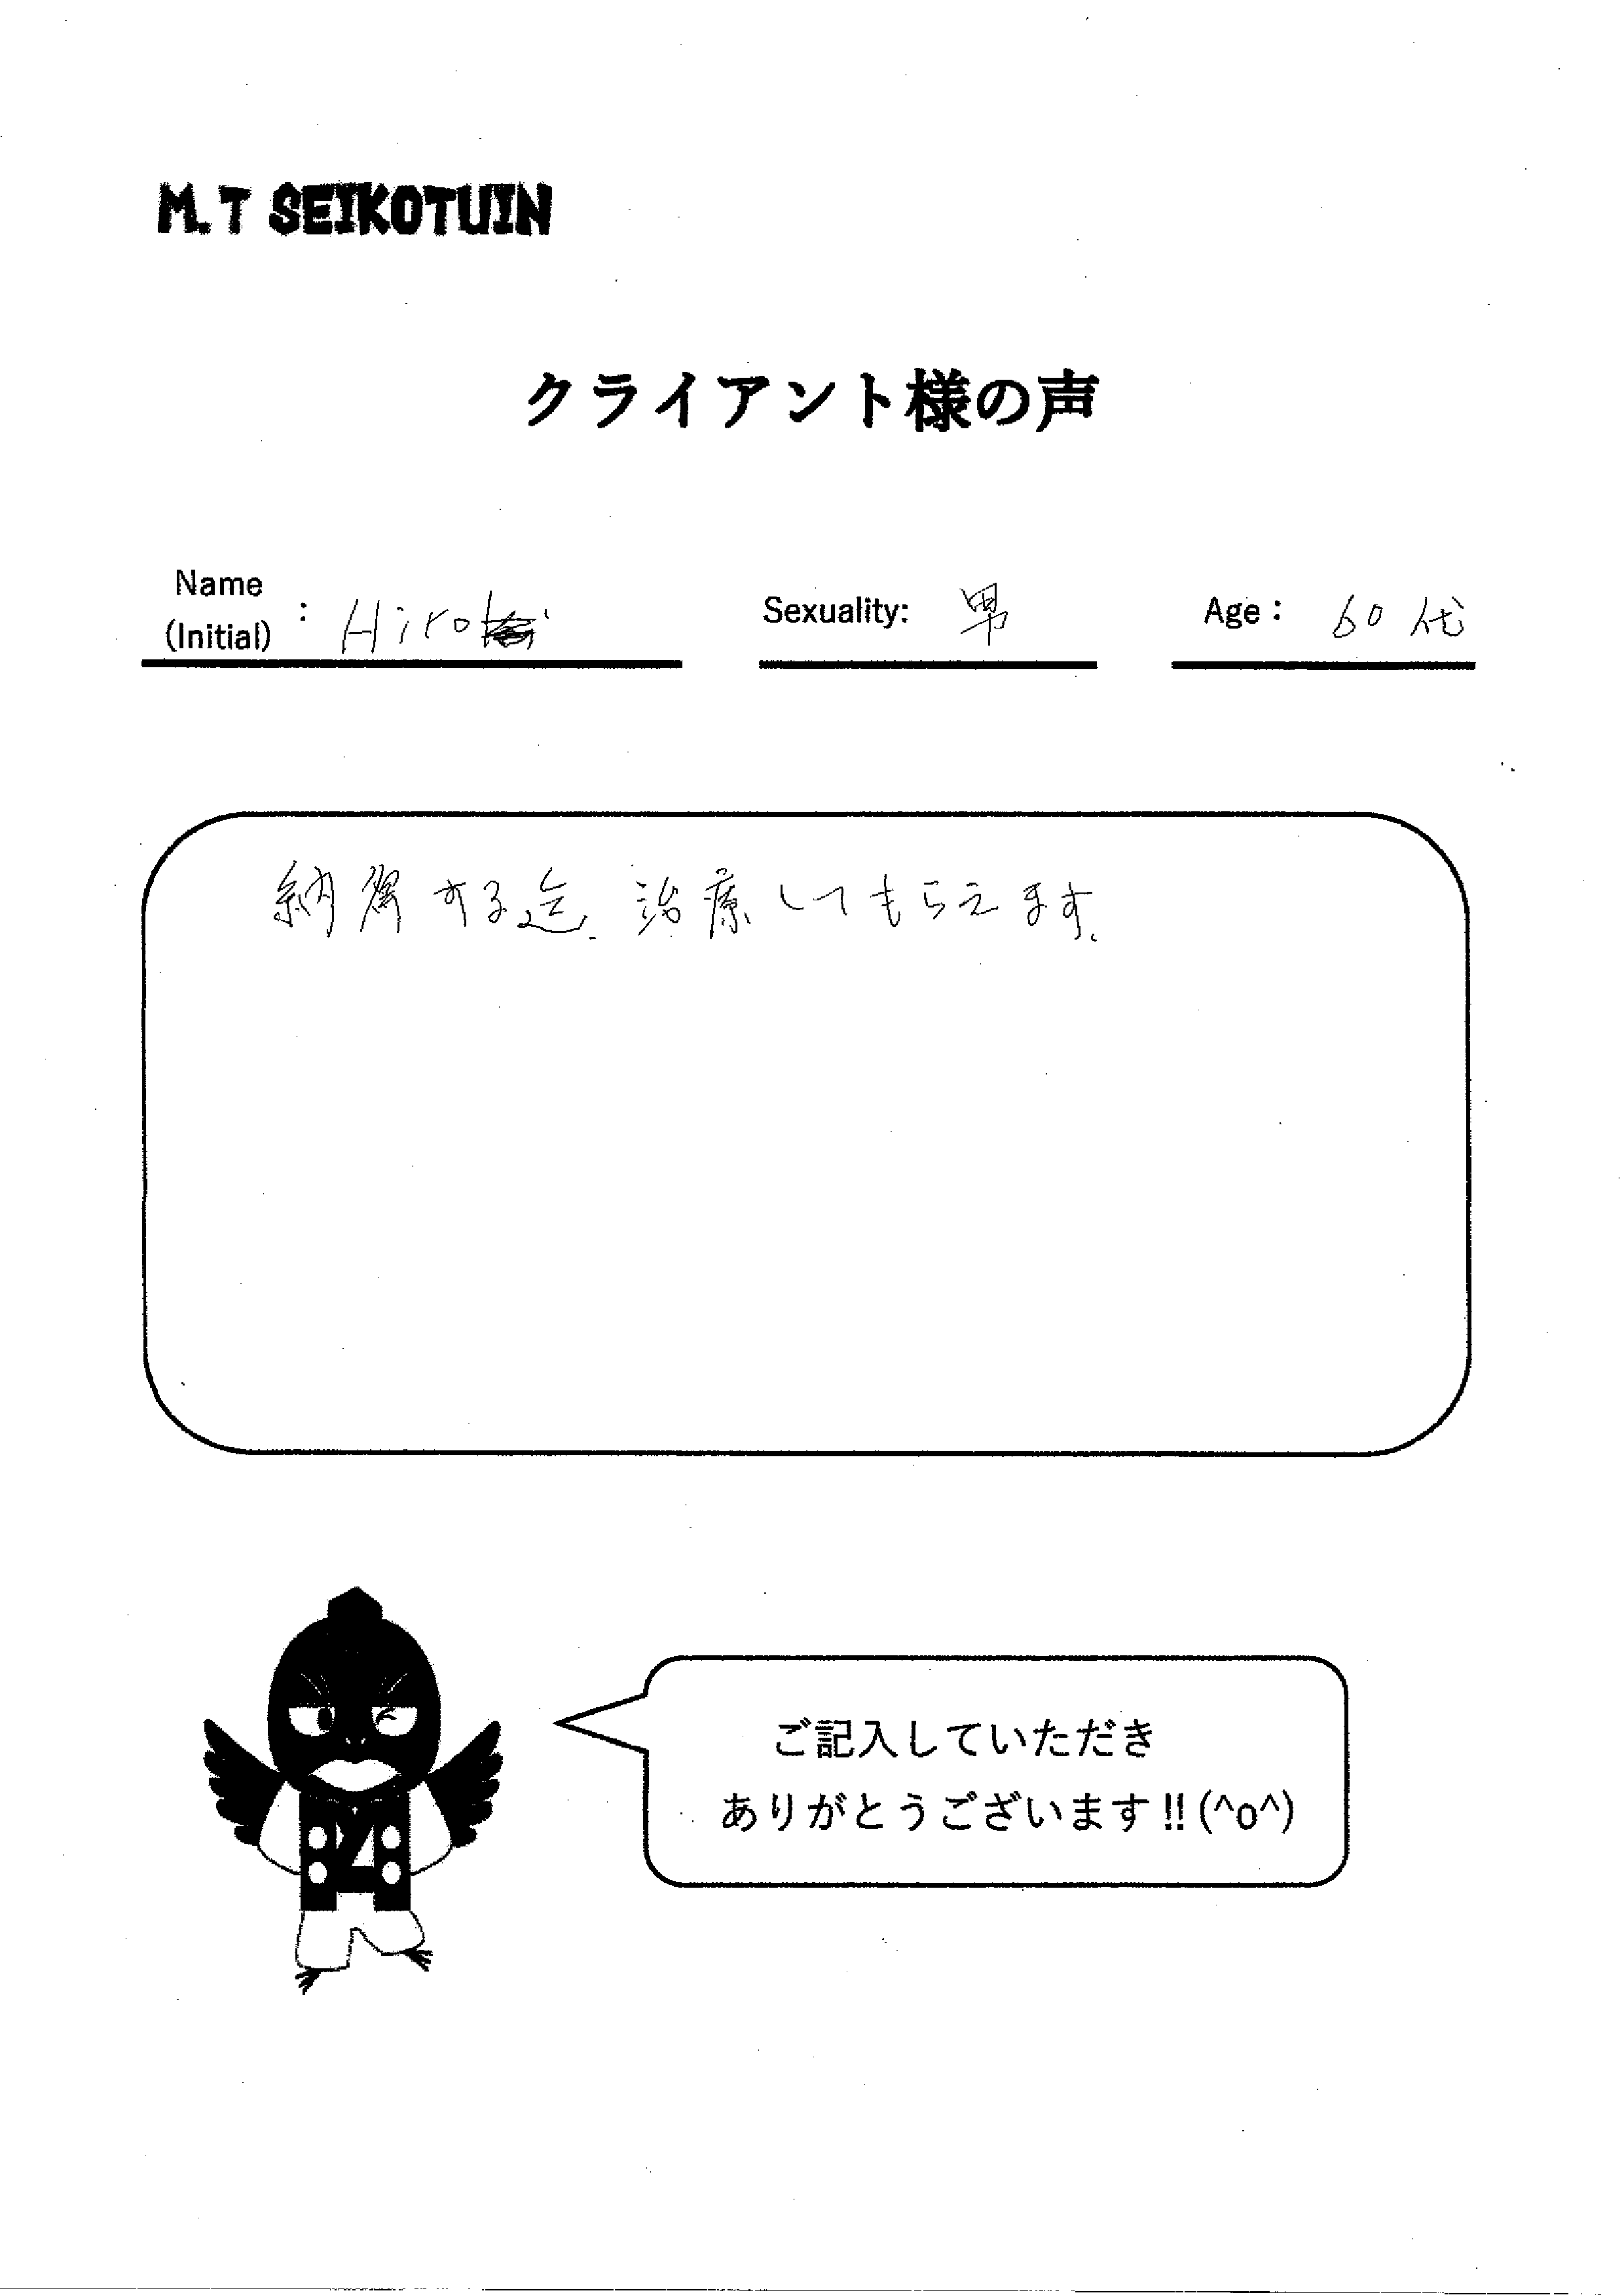 M.T SEIKOTUIN
クライアント様の声
Name
(Initial) : Hiro
Sexuality: 男
Age: 60代
納得する迄、治療してもらえます。
ご記入していただき
ありがとうございます!!(^o^)